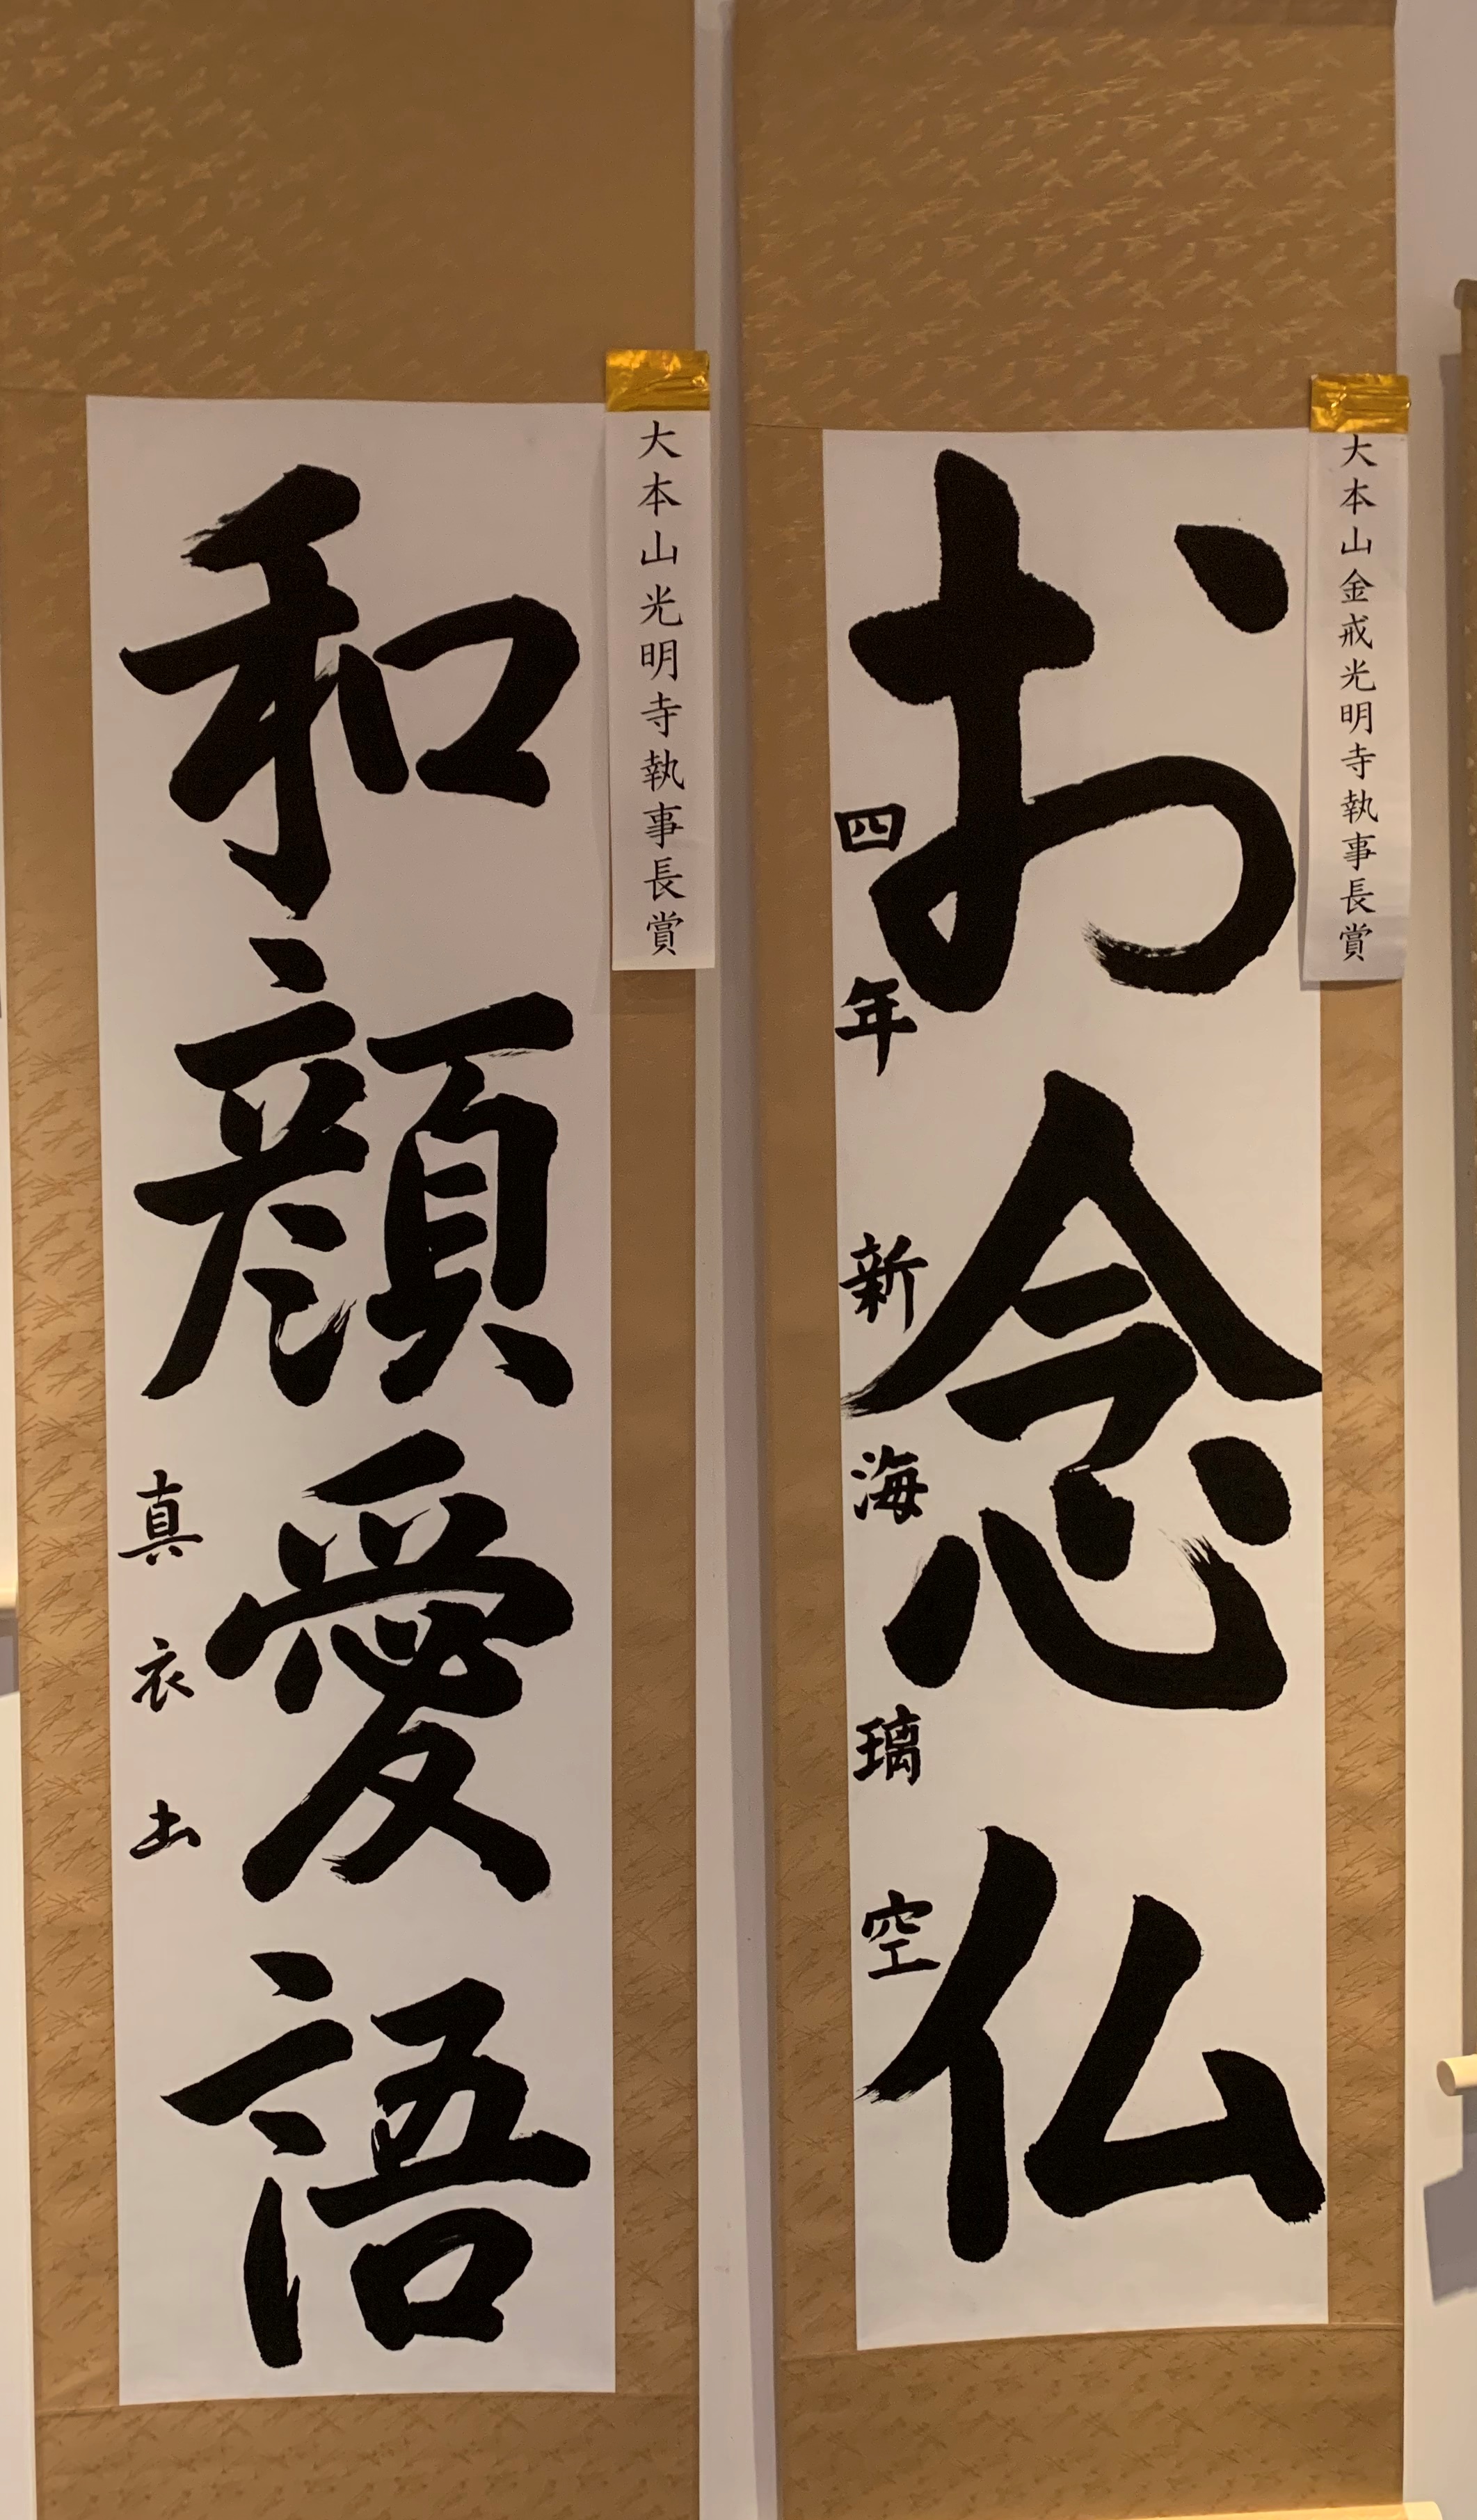 大本山金戒光明寺執事長賞
お念仏
四年 新海璃空
大本山光明寺執事長賞
和顔愛語
真衣